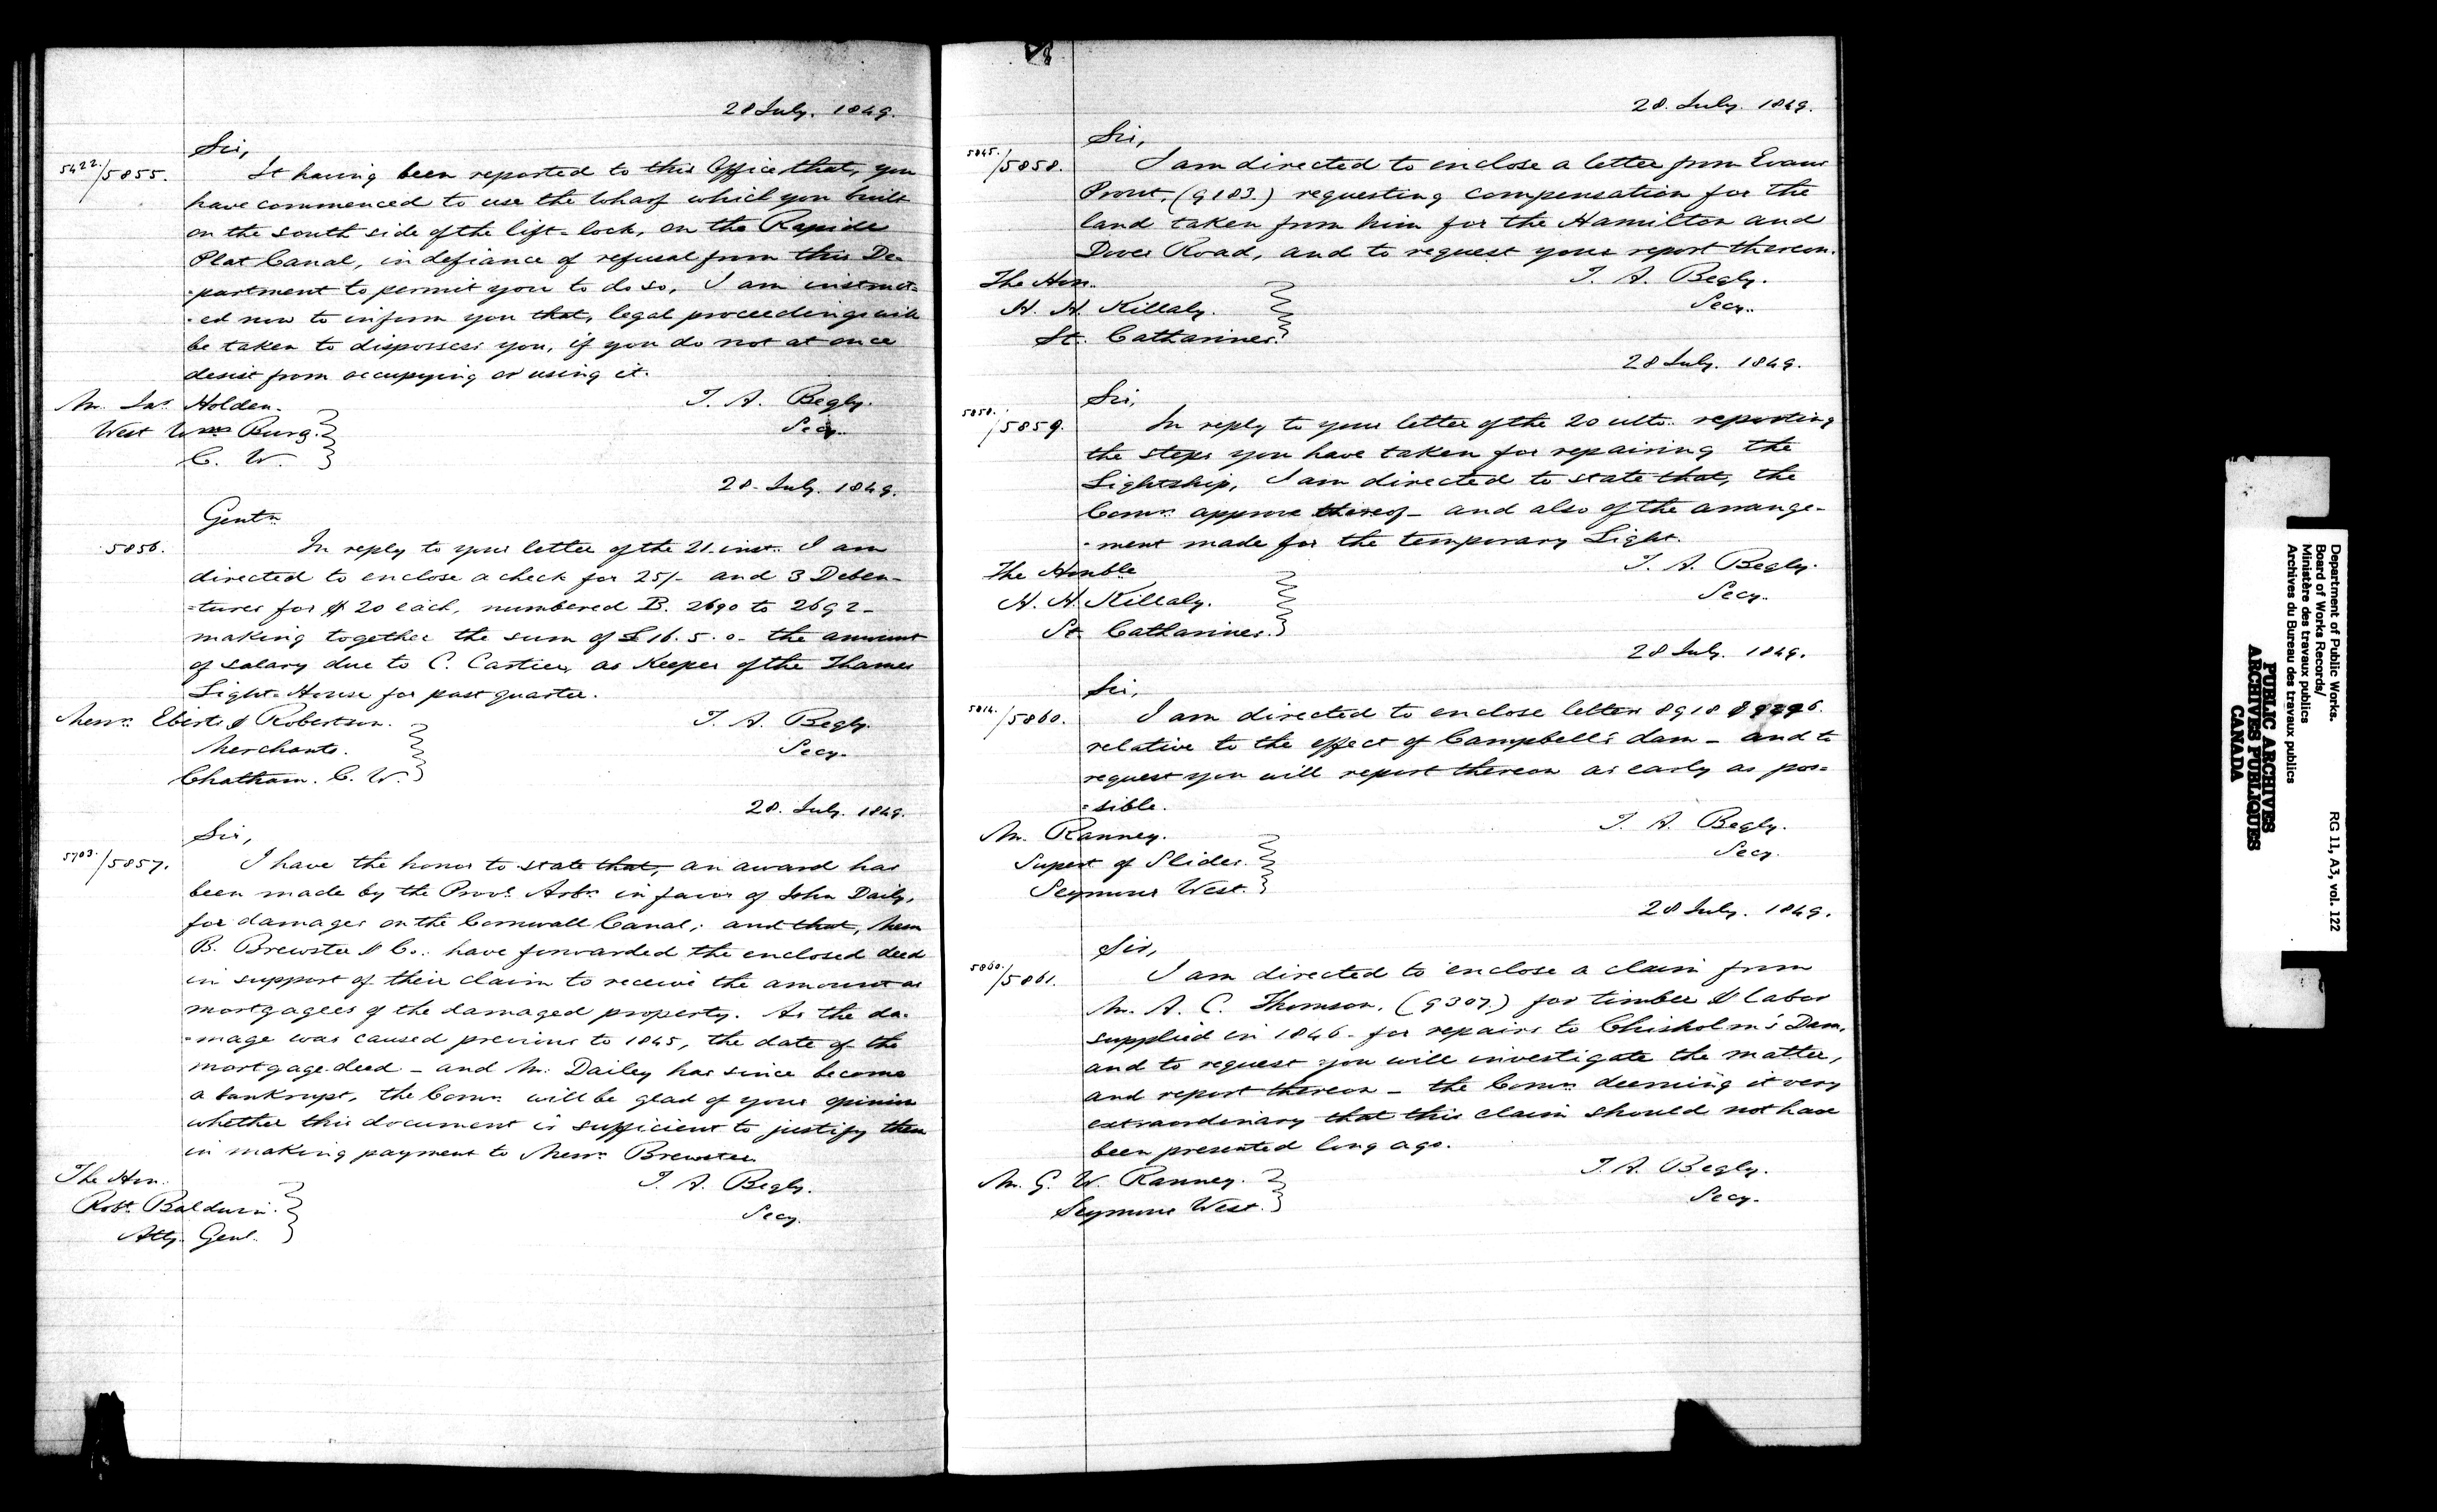 28 July. 1849.
Sir,
5422./5855.
It having been reported to this Office that, you
have commenced to use the Wharf which you built
on the south side of the lift-lock, on the Rapide
Plat Canal, in defiance of refusal from this De-
-partment to permit you to do so, I am instruct-
-ed now to inform you that, legal proceedings will
be taken to dispossess you, if you do not at once
desist from occupying or using it.
Mr. Jas. Holden.
West Wms Burg.
C. W.
T. A. Begly.
Secy.
28. July. 1849.
Gentn
5856.
In reply to your letter of the 21. inst. I am
directed to enclose a check for 25/- and 3 Deben-
-tures for $20 each, numbered B. 2690 to 2692-
making together the sum of £16.5.0- the amount
of salary due to C. Cartier, as Keeper of the Thames
Light-House for past quarter.
Messrs. Eberts & Robertson.
Merchants.
Chatham. C. W.
T. A. Begly.
Secy.
28. July. 1849.
Sir,
5703./5857.
I have the honor to state that, an award has
been made by the Provl. Arbrs. in favor of John Daily,
for damages on the Cornwall Canal; and that, Messrs
B. Brewster & Co. have forwarded the enclosed deed
in support of their claim to receive the amount as
mortgagees of the damaged property. As the da-
-mage was caused previous to 1845, the date of the
mortgage-deed - and Mr. Dailey has since become
a bankrupt, the Comrs. will be glad of your opinion
whether this document is sufficient to justify them
in making payment to Messrs. Brewster.
The Hon.
Robt. Baldwin.
Atty. Genl.
T. A. Begly.
Secy.
28. July. 1849.
Sir,
5845./5858.
I am directed to enclose a letter from Evans
Prout, (9183.) requesting compensation for the
land taken from him for the Hamilton and
Dover Road, and to request your report thereon.
The Hon.
H. H. Killaly.
St. Catharines.
T. A. Begly.
Secy.
28 July. 1849.
Sir,
5850./5859.
In reply to your letter of the 20 ulto. reporting
the steps you have taken for repairing the
Lightship, I am directed to state that, the
Comrs. approve thereof - and also of the arrange-
-ment made for the temporary Light.
The Honble
H. H. Killaly.
St. Catharines.
T. A. Begly.
Secy.
28 July. 1849.
Sir,
5814./5860.
I am directed to enclose letters 8918 &
relative to the effect of Campbell's dam - and to
request you will report thereon as early as pos-
-sible.
Mr. Ranney.
Supert. of Slides.
Seymour West.
T. A. Begly.
Secy.
28 July. 1849.
Sir,
5860./5861.
I am directed to enclose a claim from
Mr. A. C. Thomson. (9307.) for timber & labor
supplied in 1846- for repairs to Chisholm's Dam,
and to request you will investigate the matter,
and report thereon - the Comrs. deeming it very
extraordinary that this claim should not have
been presented long ago.
Mr. G. W. Ranney.
Seymour West.
T. A. Begly.
Secy.
Department of Public Works.
Board of Works Records/
Ministère des travaux publics
Archives du Bureau des travaux publics
RG 11, A3, vol. 122
PUBLIC ARCHIVES
ARCHIVES PUBLIQUES
CANADA